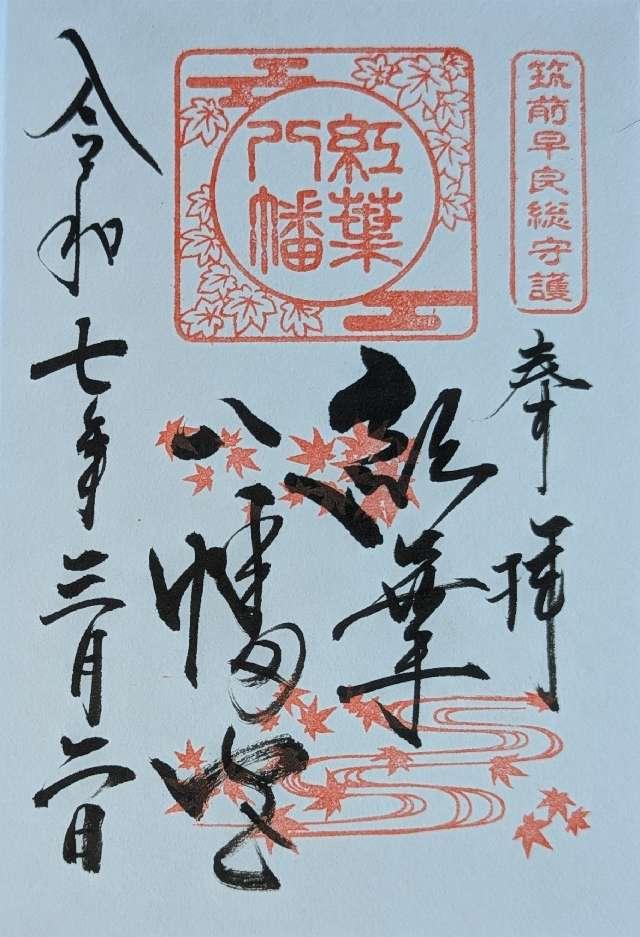 筑前早良総守護
奉拝
紅葉
八幡
紅葉
八幡宮
令和七年三月二日